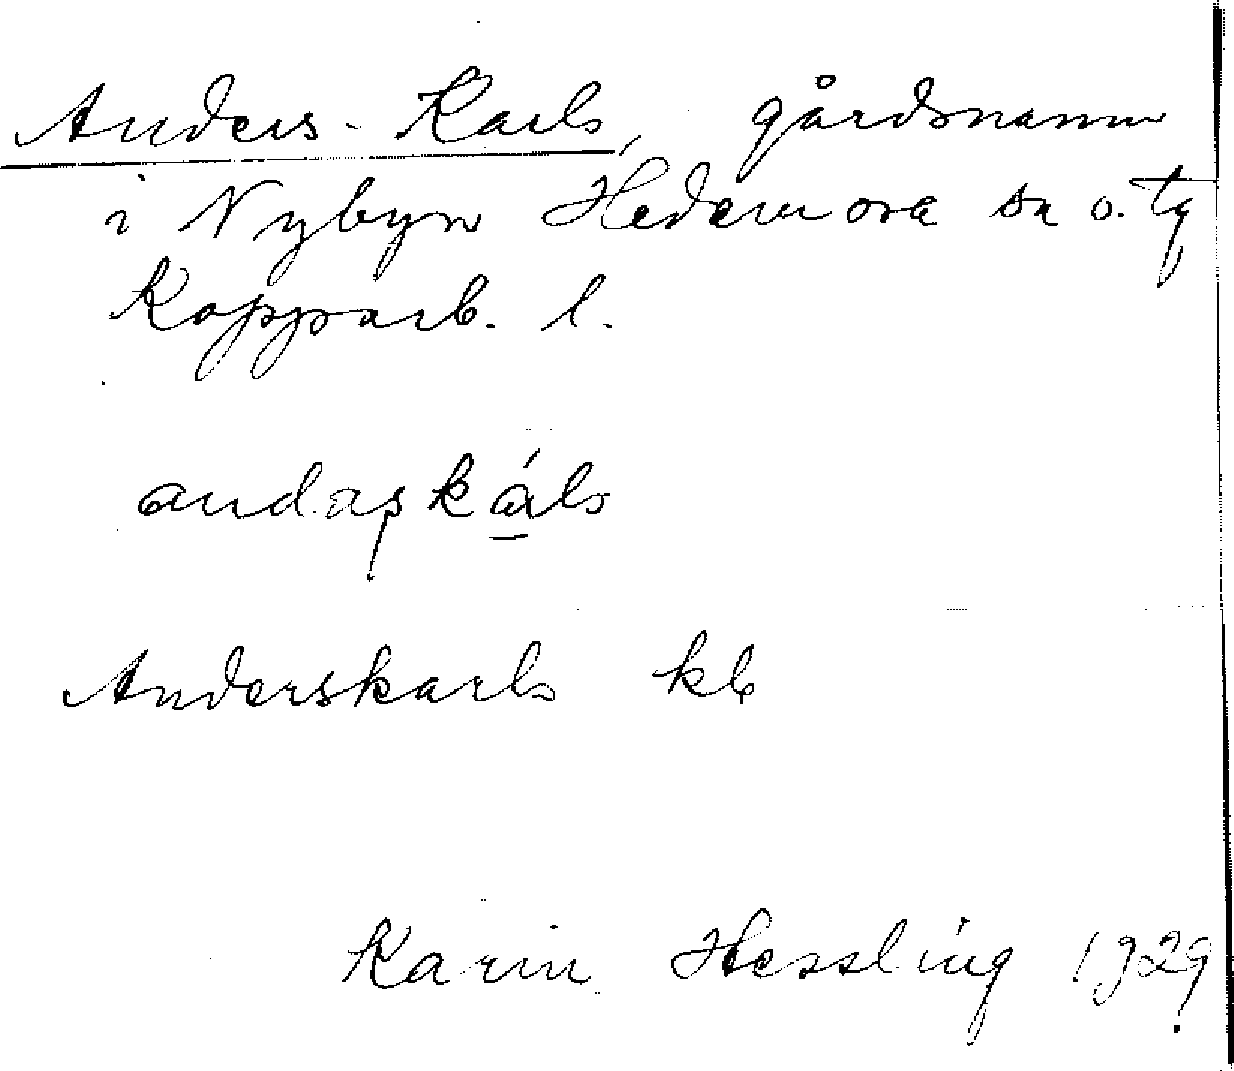 Anders-Karls, gårdsnamn
i Nybyn Hedemora sn o. tg
Kopparb. l.
andaʂkáls
Anderskarls kb
Karin Hessling 1929